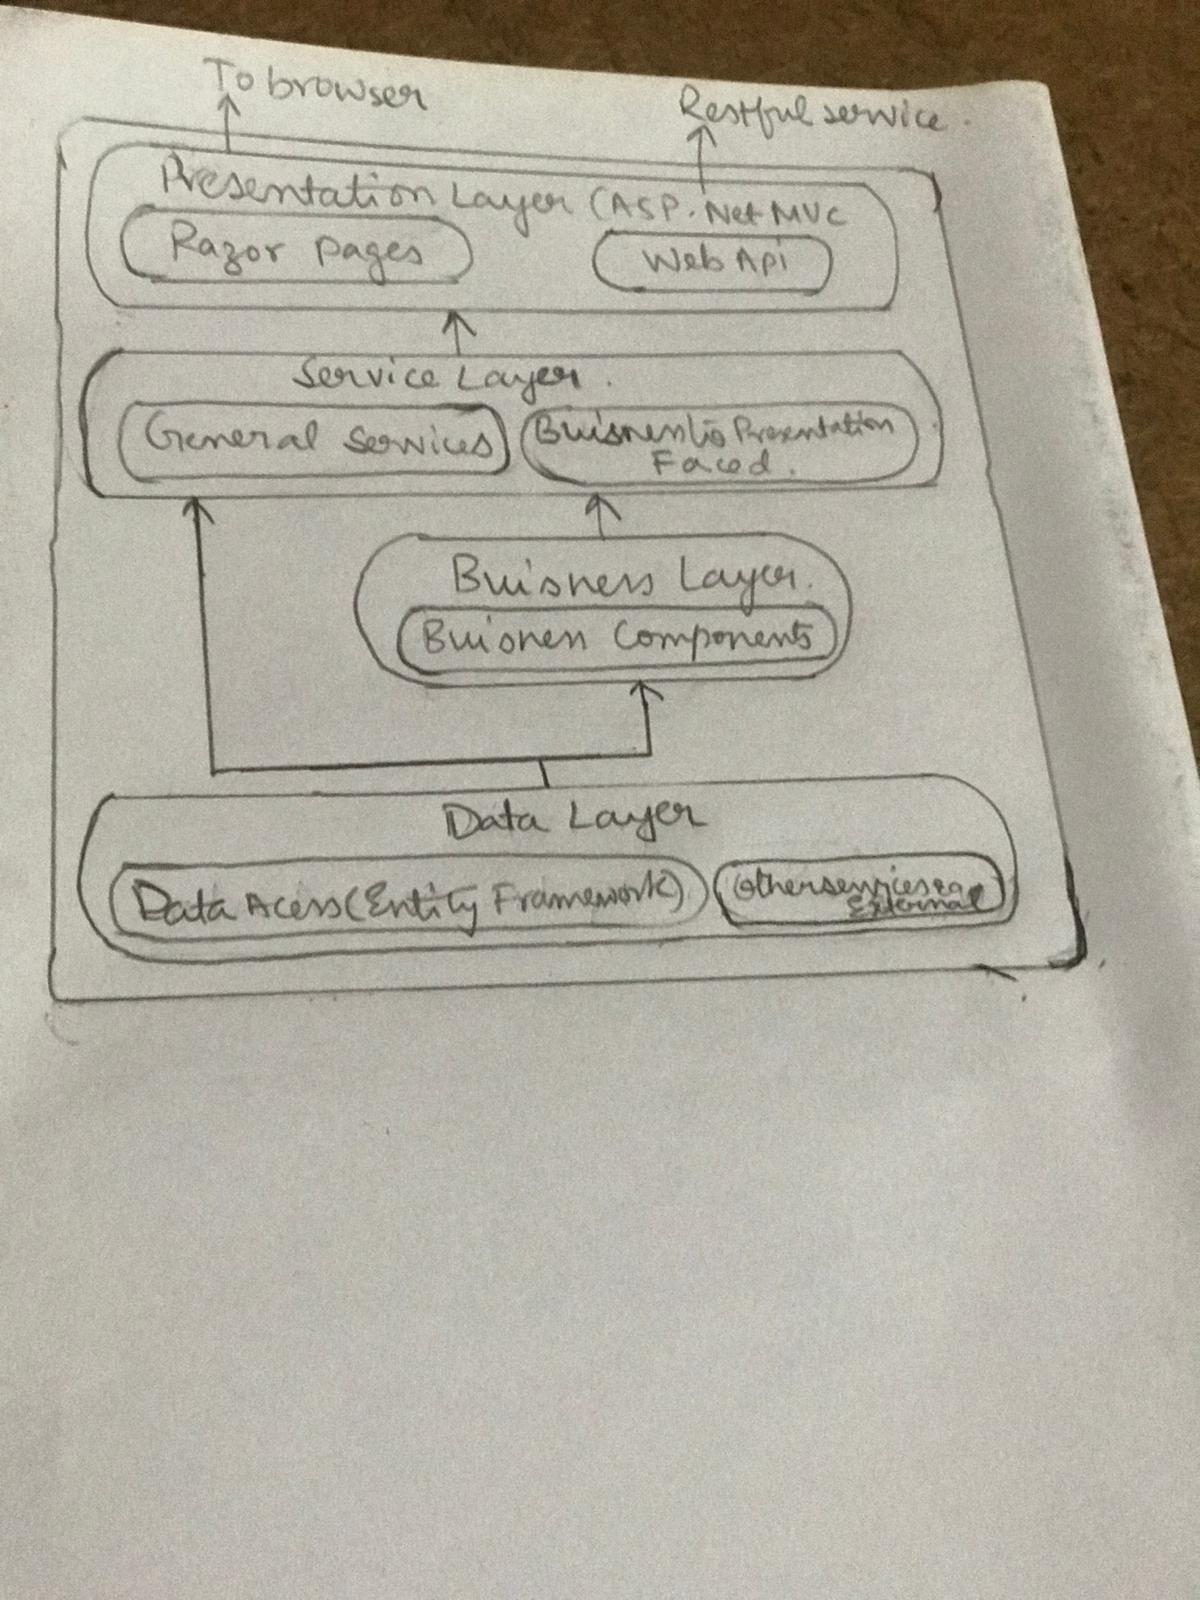 To browser
Restful service.
Presentation Layer (ASP.Net MVC
Razor pages
Web Api
Service Layer.
General Services
Buisness to Presentation
Faced.
Buisness Layer.
Buisness Components
Data Layer
Data Acess (Entity Framework)
Other services eg
External